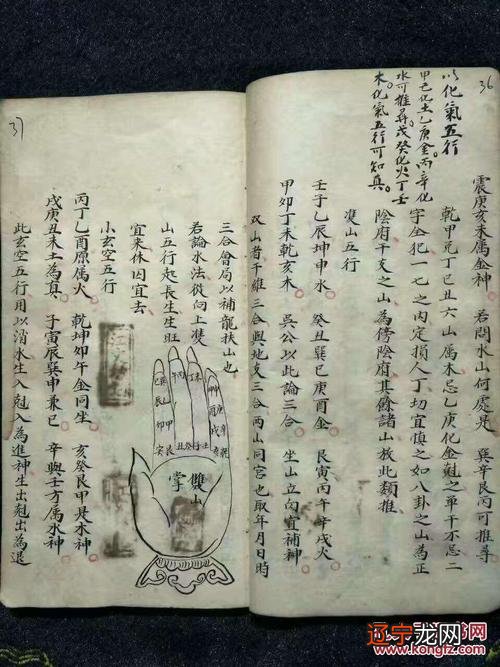 36
以化氣五行
甲己化土乙庚金丙辛化
水可推尋戊癸化火丁壬
木化氣五行可知真
震庚亥未属金氣 若問水山何處是 巽辛艮丙可推尋
乾甲兑丁巳丑六山属木忌乙庚化金尅之单干不忌二
字全犯一七之内定損人丁切宜慎之如八卦之山為正
陰府干支之山為傍陰府其餘諸山故此類推
双山五行
壬子乙辰坤申水 癸丑巽巳庚酉金 艮寅丙午辛戌火
甲卯丁未乾亥木 吳公以此論三合 坐山立向宜補神
双山者干維三合與地支三合两山同宫也取年月日時
37
三合會局以補龍扶山也
若論水法從向上雙
山五行起長生生旺
宜来休囚宜去
小玄空五行
丙丁乙酉原属火 乾坤卯午金同坐 亥癸艮甲是水神
戌庚丑未土為真 子寅辰巽申兼巳 辛與壬方属水神
此玄空五行用以消水生入尅入為進神生出尅出為退
雙山
掌
辽宁龙网
www.kongfz.com